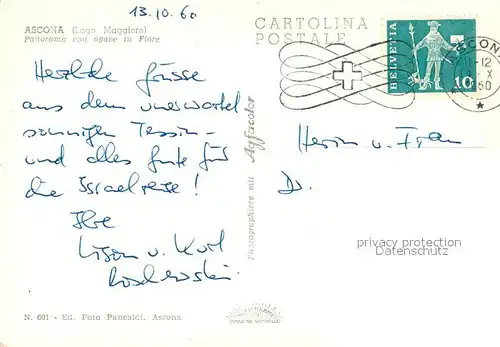 13.10.60
ASCONA (Lago Maggiore)
Panorama con agave in Fiore
CARTOLINA
POSTALE
HELVETIA
10
ASCONA
-12
X
60
Herzliche Grüsse
aus dem unerwartet
sonnigen Tessin -
und alles Gute für
die Israelreise!
Ihre
u. Kurt
Herrn u. Frau
Dr.
privacy protection
Datenschutz
Photographiere mit Agfacolor
N. 601 - Ed. Foto Pancaldi, Ascona